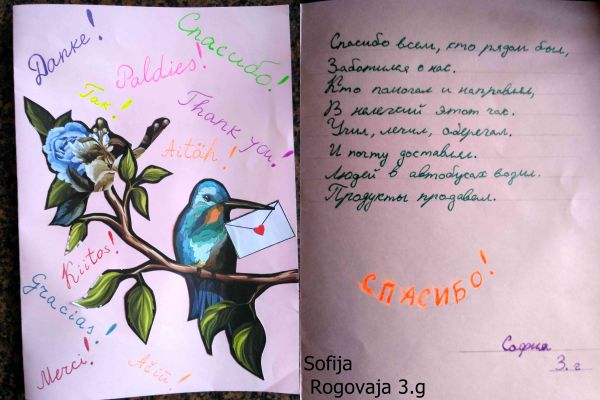 Danke!
Спасибо!
Paldies!
Tak!
Thank you!
Aitäh!
Kiitos!
Gracias!
Merci!
Ačiū!
Спасибо всем, кто рядом был,
Заботился о нас.
Кто помогал и направлял,
В нелегкий этот час.
Учил, лечил, оберегал.
И почту доставлял.
Людей в автобусах возил.
Продукты продавал.
СПАСИБО!
София
3. г
Sofija
Rogovaja 3.g